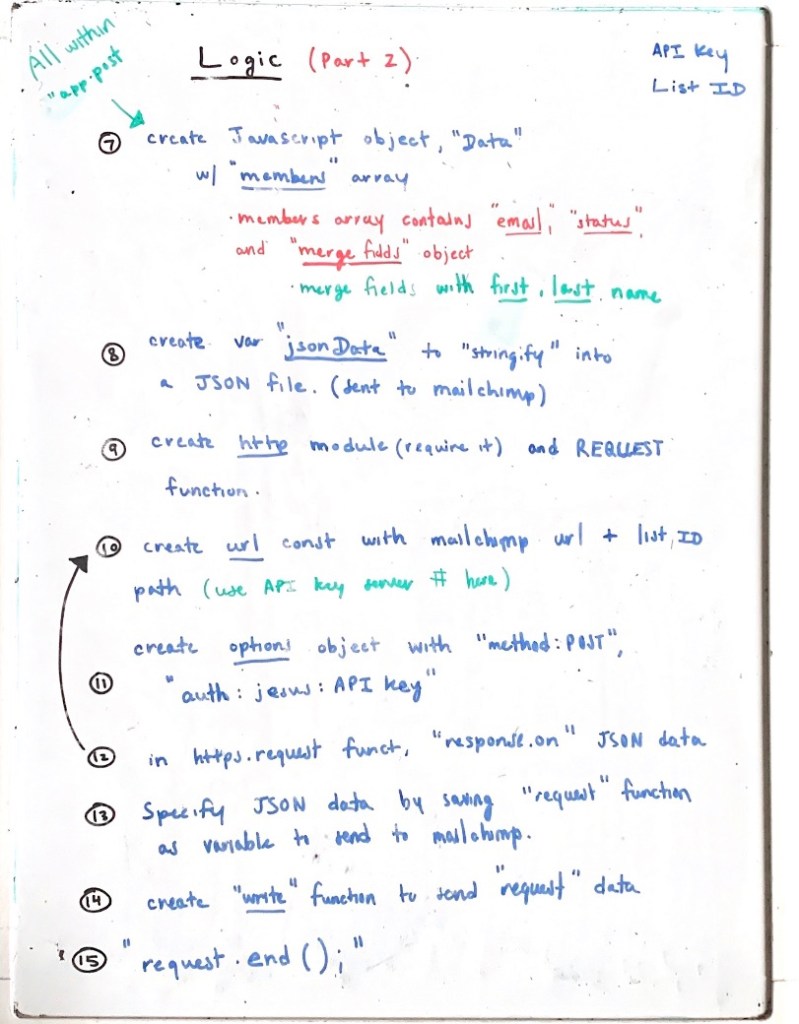 All within
"app.post
Logic (Part 2)
API Key
List ID
7 create Javascript object, "Data"
w/ "members" array
· members array contains "email", "status",
and "merge fields" object
· merge fields with first, last name
8 create var "jsonData" to "stringify" into
a JSON file. (sent to mailchimp)
9 create http module (require it) and REQUEST
function.
10 create url const with mailchimp url + list, ID
path (use API key server # here)
create options object with "method: POST",
11 "auth: jesus: API key"
12 in https.request funct, "response.on" JSON data
13 Specify JSON data by saving "request" function
as variable to send to mailchimp.
14 create "write" function to send "request" data
15 "request.end();"